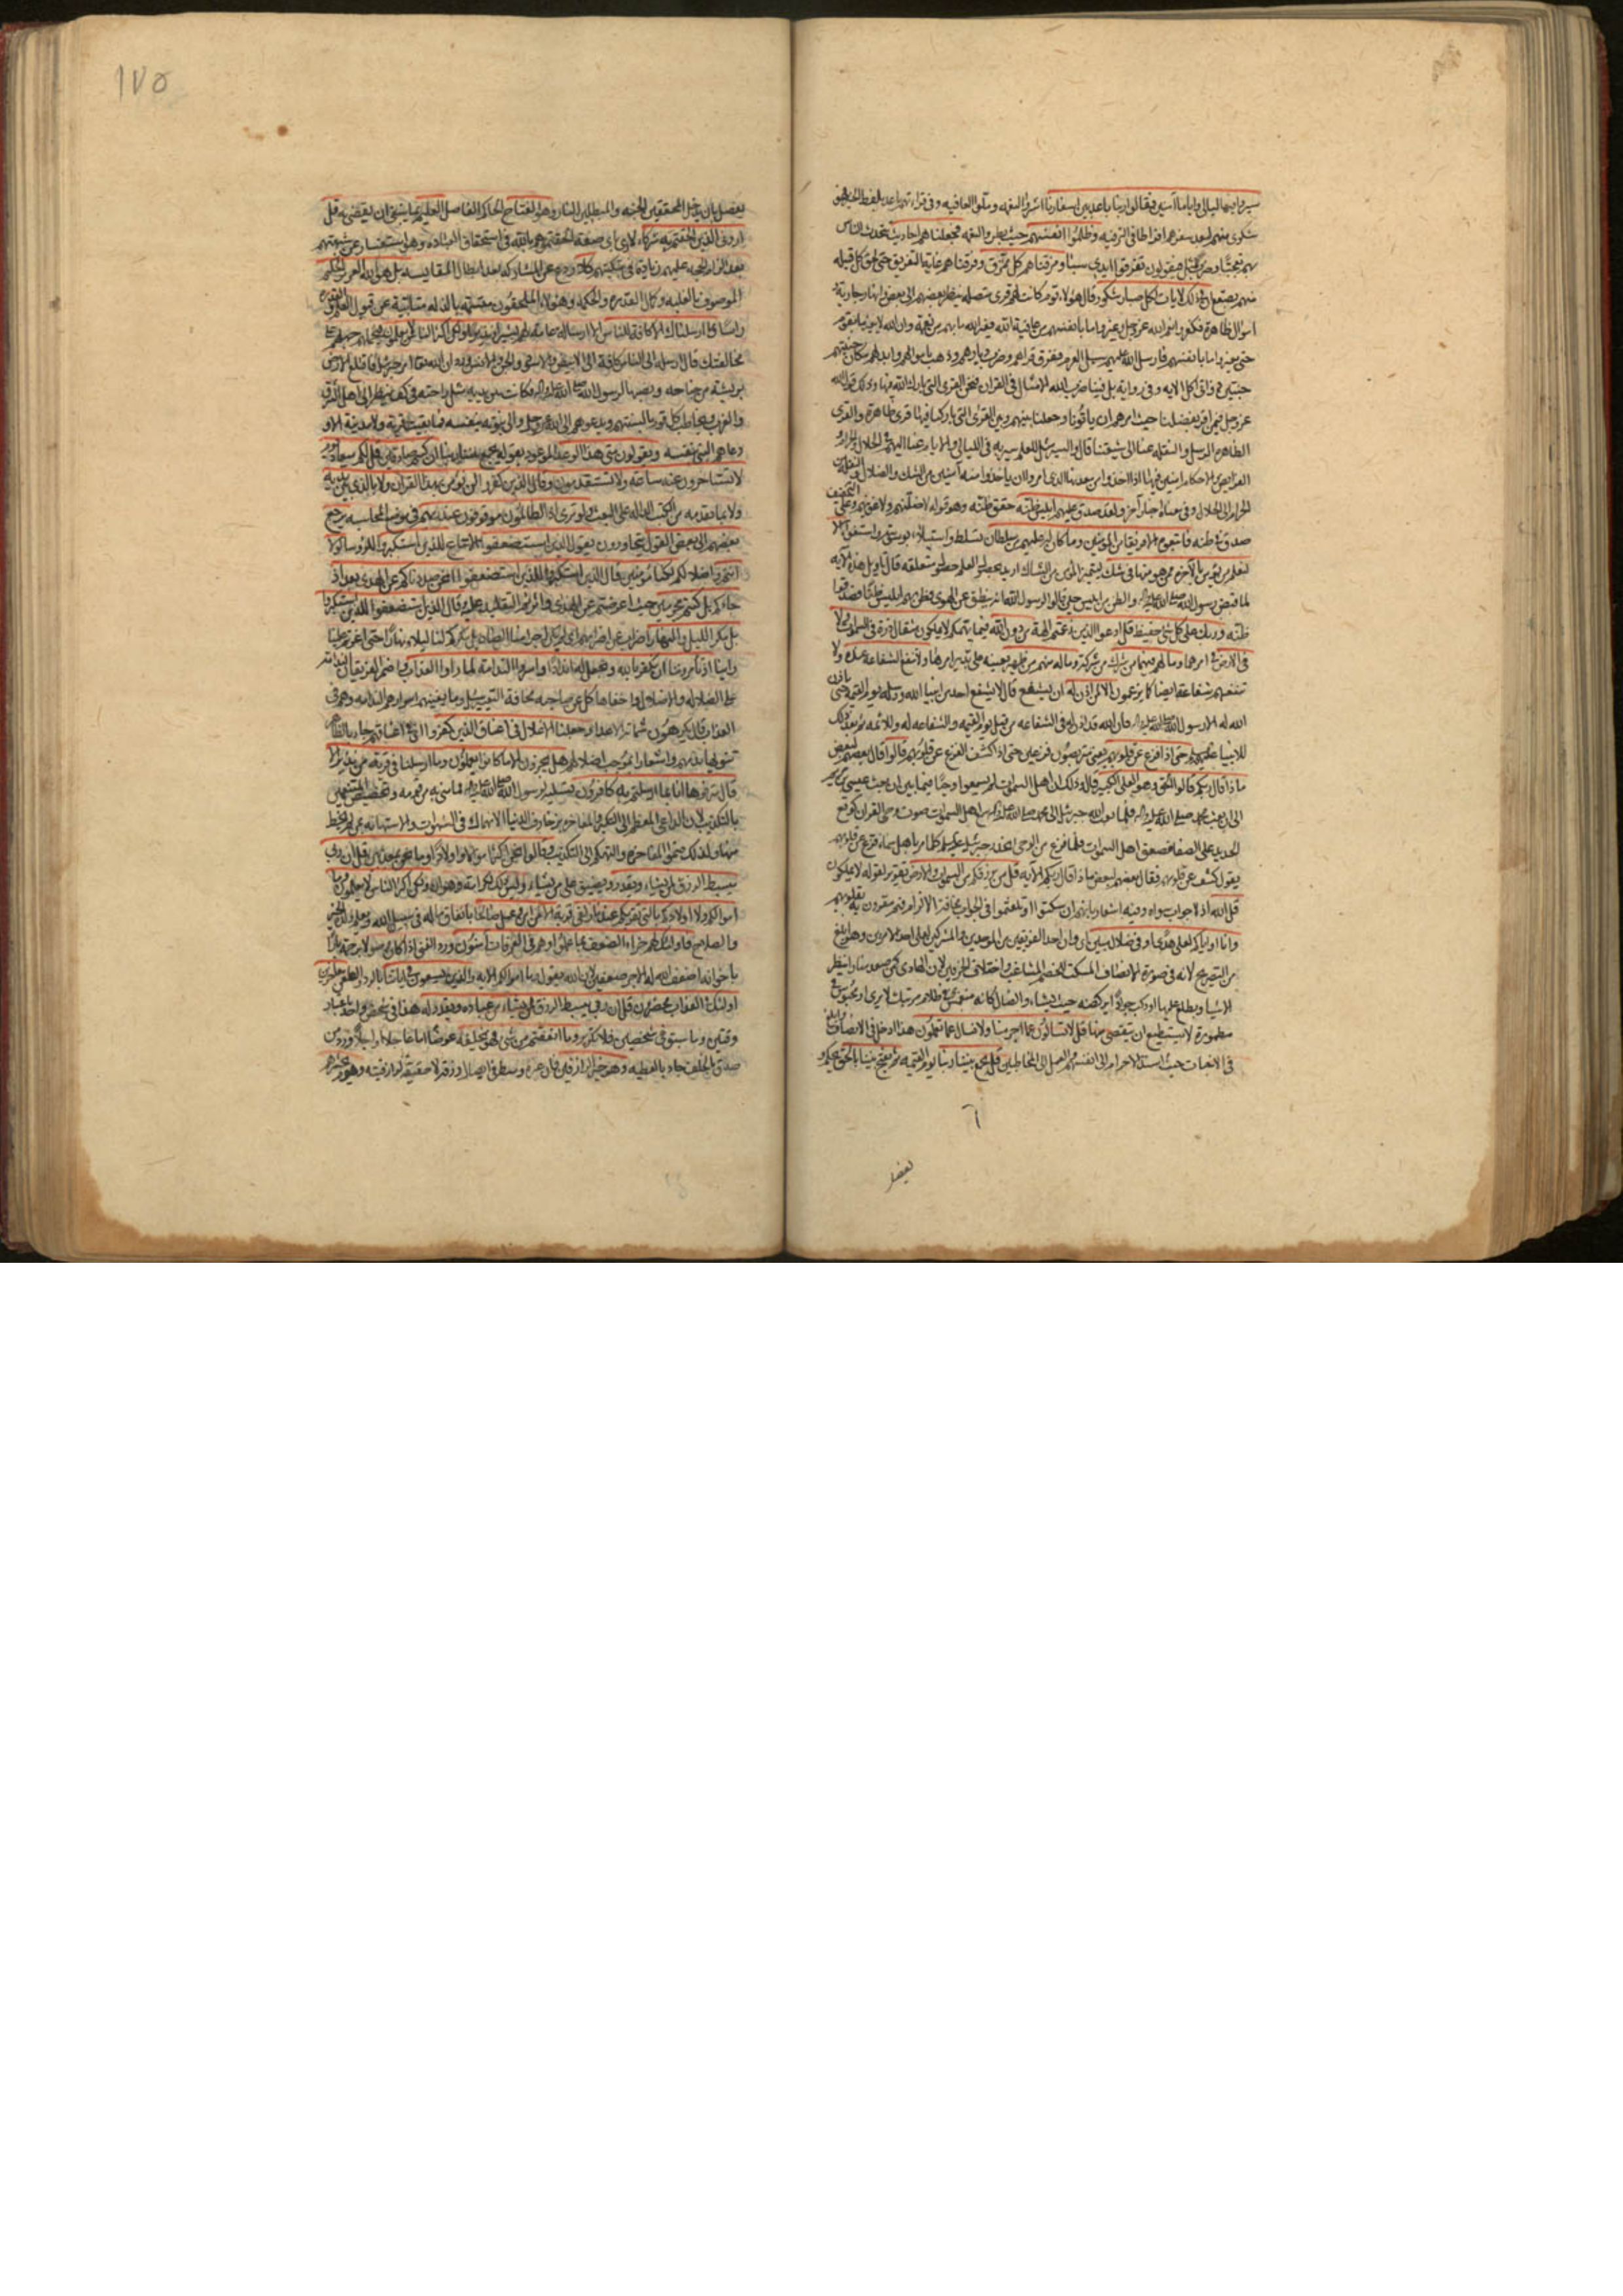 سيروا فيها ليالي واياما آمنين فقالوا ربنا باعد بين اسفارنا اشروا النعمه وملوا العافيه وفى قراءتهم باعد بلفظ الخبر
شكوى منهم لبعد سفرهم افراطا فى الترفيه وظلموا انفسهم حيث بطروا النعمه فجعلناهم احاديث يتحدث الناس
بهم تعجبا وضرب مثل فيقولون تفرقوا ايدى سبا ومزقناهم كل ممزق وفرقناهم غاية التفريق حتى لحق كل قبيله
منهم بصقع ان فى ذلك لايات لكل صبار شكور قال هؤلاء قوم كانت لهم قرى متصله ينظر بعضهم الى بعض وانهار جاريه
اموال ظاهرة فكفروا نعم الله عز وجل وغيروا ما بانفسهم من عافية الله فغير الله ما بهم من نعمة وان الله لا يغير ما بقوم
حتى يغيروا ما بانفسهم فارسل الله عليهم سيل العرم ففرق قراهم وخرب ديارهم وذهب باموالهم وابدلهم مكان جنتيهم
جنتين ذواتى اكل الايه وفى رواية بل فينا ضرب الله الامثال فى القران فنحن القرى التى بارك الله فيها وذلك قول الله
عز وجل فيمن اقر بفضلنا حيث امرهم ان ياتونا وجعلنا بينهم وبين القرى التى باركنا فيها قرى ظاهرة والقرى
الظاهرة الرسل والنقله عنا الى شيعتنا قال والسير مثل للعلم سير به فى الليالى والايام عنا اليهم فى الحلال والحرام و
الفرايض والاحكام امنين فيها اذا اخذوا من معدنها الذى امروا ان ياخذوا منه آمنين من الشك والضلال والنقله من
الحرام الى الحلال وفى معناه اخبار آخر ولقد صدق عليهم ابليس ظنه حقق ظنه وهو قوله لاضلنهم ولاغوينهم وعلى التخفيف
صدق فى ظنه فاتبعوه الا فريقا من المؤمنين وما كان له عليهم من سلطان تسلط واستيلاء بوسوسة واستغواء الا
لنعلم من يؤمن بالآخرة ممن هو منها فى شك ليتميز المؤمن من الشاك اريد بحصول العلم حصول متعلقه قال تاويل هذه الايه
لما قبض رسول الله صلى الله عليه واله والظن من ابليس حين قالوا لرسول الله انه ينطق عن الهوى فظن بهم ابليس ظنا فصدقوا
ظنه وربك على كل شئ حفيظ قل ادعوا الذين زعمتم الهة من دون الله فيما يهمكم لا يملكون مثقال ذرة فى السموات ولا
فى الارض امر ما وما لهم فيهما من شرك من شركة وما له منهم من ظهير يعينه على تدبير امرهما ولا تنفع الشفاعة عنده ولا
تنفعهم شفاعة ايضا كما يزعمون الا لمن اذن له ان يشفع قال لا يشفع احد من انبيا الله ورسله يوم القيمه حتى ياذن
الله له الا رسول الله صلى الله عليه واله فان الله قد اذن له فى الشفاعه من قبل يوم القيمه والشفاعه له وللائمه ثم بعد ذلك
للانبيا عليهم السلم حتى اذا فزع عن قلوبهم يعنى يتربصون فزعين حتى اذا كشف الفزع عن قلوبهم قالوا قال بعضهم لبعض
ماذا قال ربكم قالوا الحق وهو العلى الكبير قال وذلك ان اهل السموات لم يسمعوا وحيا فيما بين ان بعث عيسى بن مريم
الى ان بعث محمد صلى الله عليه واله فلما بعث الله جبرئيل الى محمد صلى الله عليه واله سمع اهل السموات صوت وحى القران كوقع
الحديد على الصفا فصعق اهل السموات فلما فرغ من الوحى انحدر جبرئيل عليه السلم كلما مر باهل سماء فزع عن قلوبهم
يقول كشف عن قلوبهم فقال بعضهم لبعض ماذا قال ربكم الآيه قل من يرزقكم من السموات والارض تقرير لقوله لا يملكون
قل الله اذ لا جواب سواه وفيه اشعار بانهم ان سكتوا او تلعثموا فى الجواب مخافة الالزام فهم مقرون به بقلوبهم
وانا او اياكم لعلى هدى او فى ضلال مبين اى وان احد الفريقين من الموحدين والمشركين لعلى احد الامرين وهو ابلغ
من التصريح لانه فى صورة الانصاف المسكت للخصم المشاغب واختلاف الحرفين لان الهادى كمن صعد منارا ينظر
الاشيا ويطلع عليها او ركب جوادا يركضه حيث يشاء والضال كانه منغمس فى ظلام مرتبك لا يرى او محبوس فى
مطمورة لا يستطيع ان يتفصى منها قل لا تسالون عما اجرمنا ولا نسال عما تعملون هذا ادخل فى الانصاف وابلغ
فى الاخبات حيث اسند الاجرام الى انفسهم والعمل الى المخاطبين قل يجمع بيننا ربنا يوم القيمه ثم يفتح بيننا بالحق يحكم و
يفصل
١٧٥
يفصل بان يدخل المحقين الجنه والمبطلين النار وهو الفتاح الحاكم الفاصل العليم بما ينبغى ان يقضى به قل
ارونى الذين الحقتم به شركاء لارى باى صفة الحقتموهم بالله فى استحقاق العباده وهو استفسار عن شبهتهم
بعد الزام الحجه عليهم زيادة فى تبكيتهم كلا ردع عن المشاركه بعد ابطال المقايسه بل هو الله العزيز الحكيم
الموصوف بالغلبه وكمال القدره والحكمه وهؤلاء الملحقون متسمه بالذله متابية عن قبول العلم والقدره
وما ارسلناك الا كافة للناس الا ارسالة عامة لهم بشيرا ونذيرا ولكن اكثر الناس لا يعلمون فيحملهم جهلهم على
مخالفتك قال ارسله الى الناس كافة الى الابيض والاسود والجن والانس وفيه ان الله تعالى امر جبرئيل فاقتلع الارض
بريشة من جناحه ونصبها لرسول الله صلى الله عليه واله وكانت بين يديه مثل راحته فى كفه ينظر الى اهل الشرق
والغرب ويخاطب كل قوم بالسنتهم ويدعوهم الى الله عز وجل والى نبوته بنفسه فما بقيت قرية ولا مدينة الا و
دعاهم النبى بنفسه ويقولون متى هذا الوعد الموعود بقوله يجمع بيننا ربنا ان كنتم صادقين قل لكم ميعاد يوم
لا تستاخرون عنه ساعة ولا تستقدمون وقال الذين كفروا لن نؤمن بهذا القران ولا بالذى بين يديه
ولا بما تقدمه من الكتب الداله على البعث ولو ترى اذ الظالمون موقوفون عند ربهم فى موضع المحاسبه يرجع
بعضهم الى بعض القول يتحاورون يقول الذين استضعفوا الاتباع للذين استكبروا للرؤسا لولا
انتم واضلالكم لكنا مؤمنين قال الذين استكبروا للذين استضعفوا انحن صددناكم عن الهدى بعد اذ
جاءكم بل كنتم مجرمين حيث اعرضتم عن الهدى واثرتم التقليد عليه وقال الذين استضعفوا للذين استكبروا
بل مكر الليل والنهار اضراب عن اضرابهم اى لم يكن اجرامنا الصاد بل مكركم لنا ليلا ونهارا حتى اغرتم علينا
راينا اذ تامروننا ان نكفر بالله ونجعل له اندادا واسروا الندامة لما راوا العذاب واضمر الفريقان الندامة
على الضلاله والاضلال واخفاها كل عن صاحبه مخافة التعيير وما يغنيهم اسرارهم الندامه وهم فى
العذاب قال يكرهون شماتة الاعداء وجعلنا الاغلال فى اعناق الذين كفروا اى فى اعناقهم جاء بالظاهر
تنويها بذمهم واشعارا بموجب اغلالهم هل يجزون الا ما كانوا يعملون وما ارسلنا فى قرية من نذير الا
قال مترفوها انا بما ارسلتم به كافرون تسليه لرسول الله صلى الله عليه واله مما منى به من قومه وتخصيص المتنعمين
بالتكذيب لان الداعى المعظم الى التكبر والمفاخره بزخارف الدنيا الانهماك فى الشهوات والاستهانه بمن لم يحظ
منها ولذلك ضموا المفاخره والتهكم الى التكذيب وقالوا نحن اكثر اموالا واولادا وما نحن بمعذبين قل ان ربى
يبسط الرزق لمن يشاء ويقدر ويضيق على من يشاء وليس ذلك لكرامة وهوان ولكن اكثر الناس لا يعلمون وما
اموالكم ولا اولادكم بالتى تقربكم عندنا زلفى قربة الا من امن وعمل صالحا بانفاق ماله فى سبيل الله وتعليم ولده الخير
والصلاح فاولئك لهم جزاء الضعف بما عملوا وهم فى الغرفات آمنون ورد الغنى اذا كان وصولا برحمه بارا
باخوانه اضعف الله له الاجر ضعفين لان الله يقول وما اموالكم الايه والذين يسعون فى اياتنا بالرد والطعن معاجزين
اولئك فى العذاب محضرون قل ان ربى يبسط الرزق لمن يشاء من عباده ويقدر له هذا فى شخص واحد باعتبار
وقتين وما سبق فى شخصين فلا تكرير وما انفقتم من شئ فهو يخلفه عوضا اما عاجلا او اجلا وورد من
صدق بالخلف جاد بالعطيه وهو خير الرازقين فان غيره وسط فى ايصال رزقه لا حقيقة لرازقيته وهو